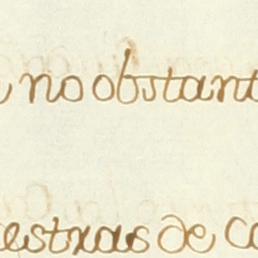 no obstant
estras de